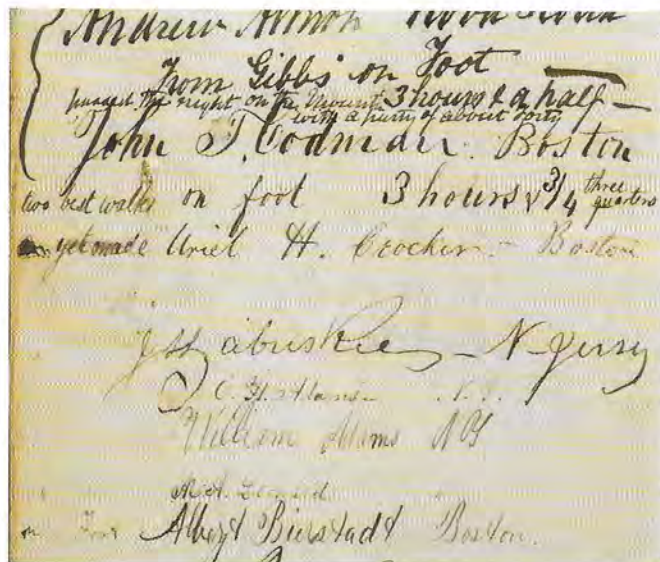 Andrew
From Gibbs on Foot
passed the night on the Mount 3 hours & a half —
with a party of about forty
John T. Codman. Boston
two best walks on foot 3 hours & 3/4 three quarters
yet made Uriel H. Crocker. - Boston
J H Zabriskie — N-Jersey
C. H.
William Adams NY
on Foot Albert Bierstadt Boston.